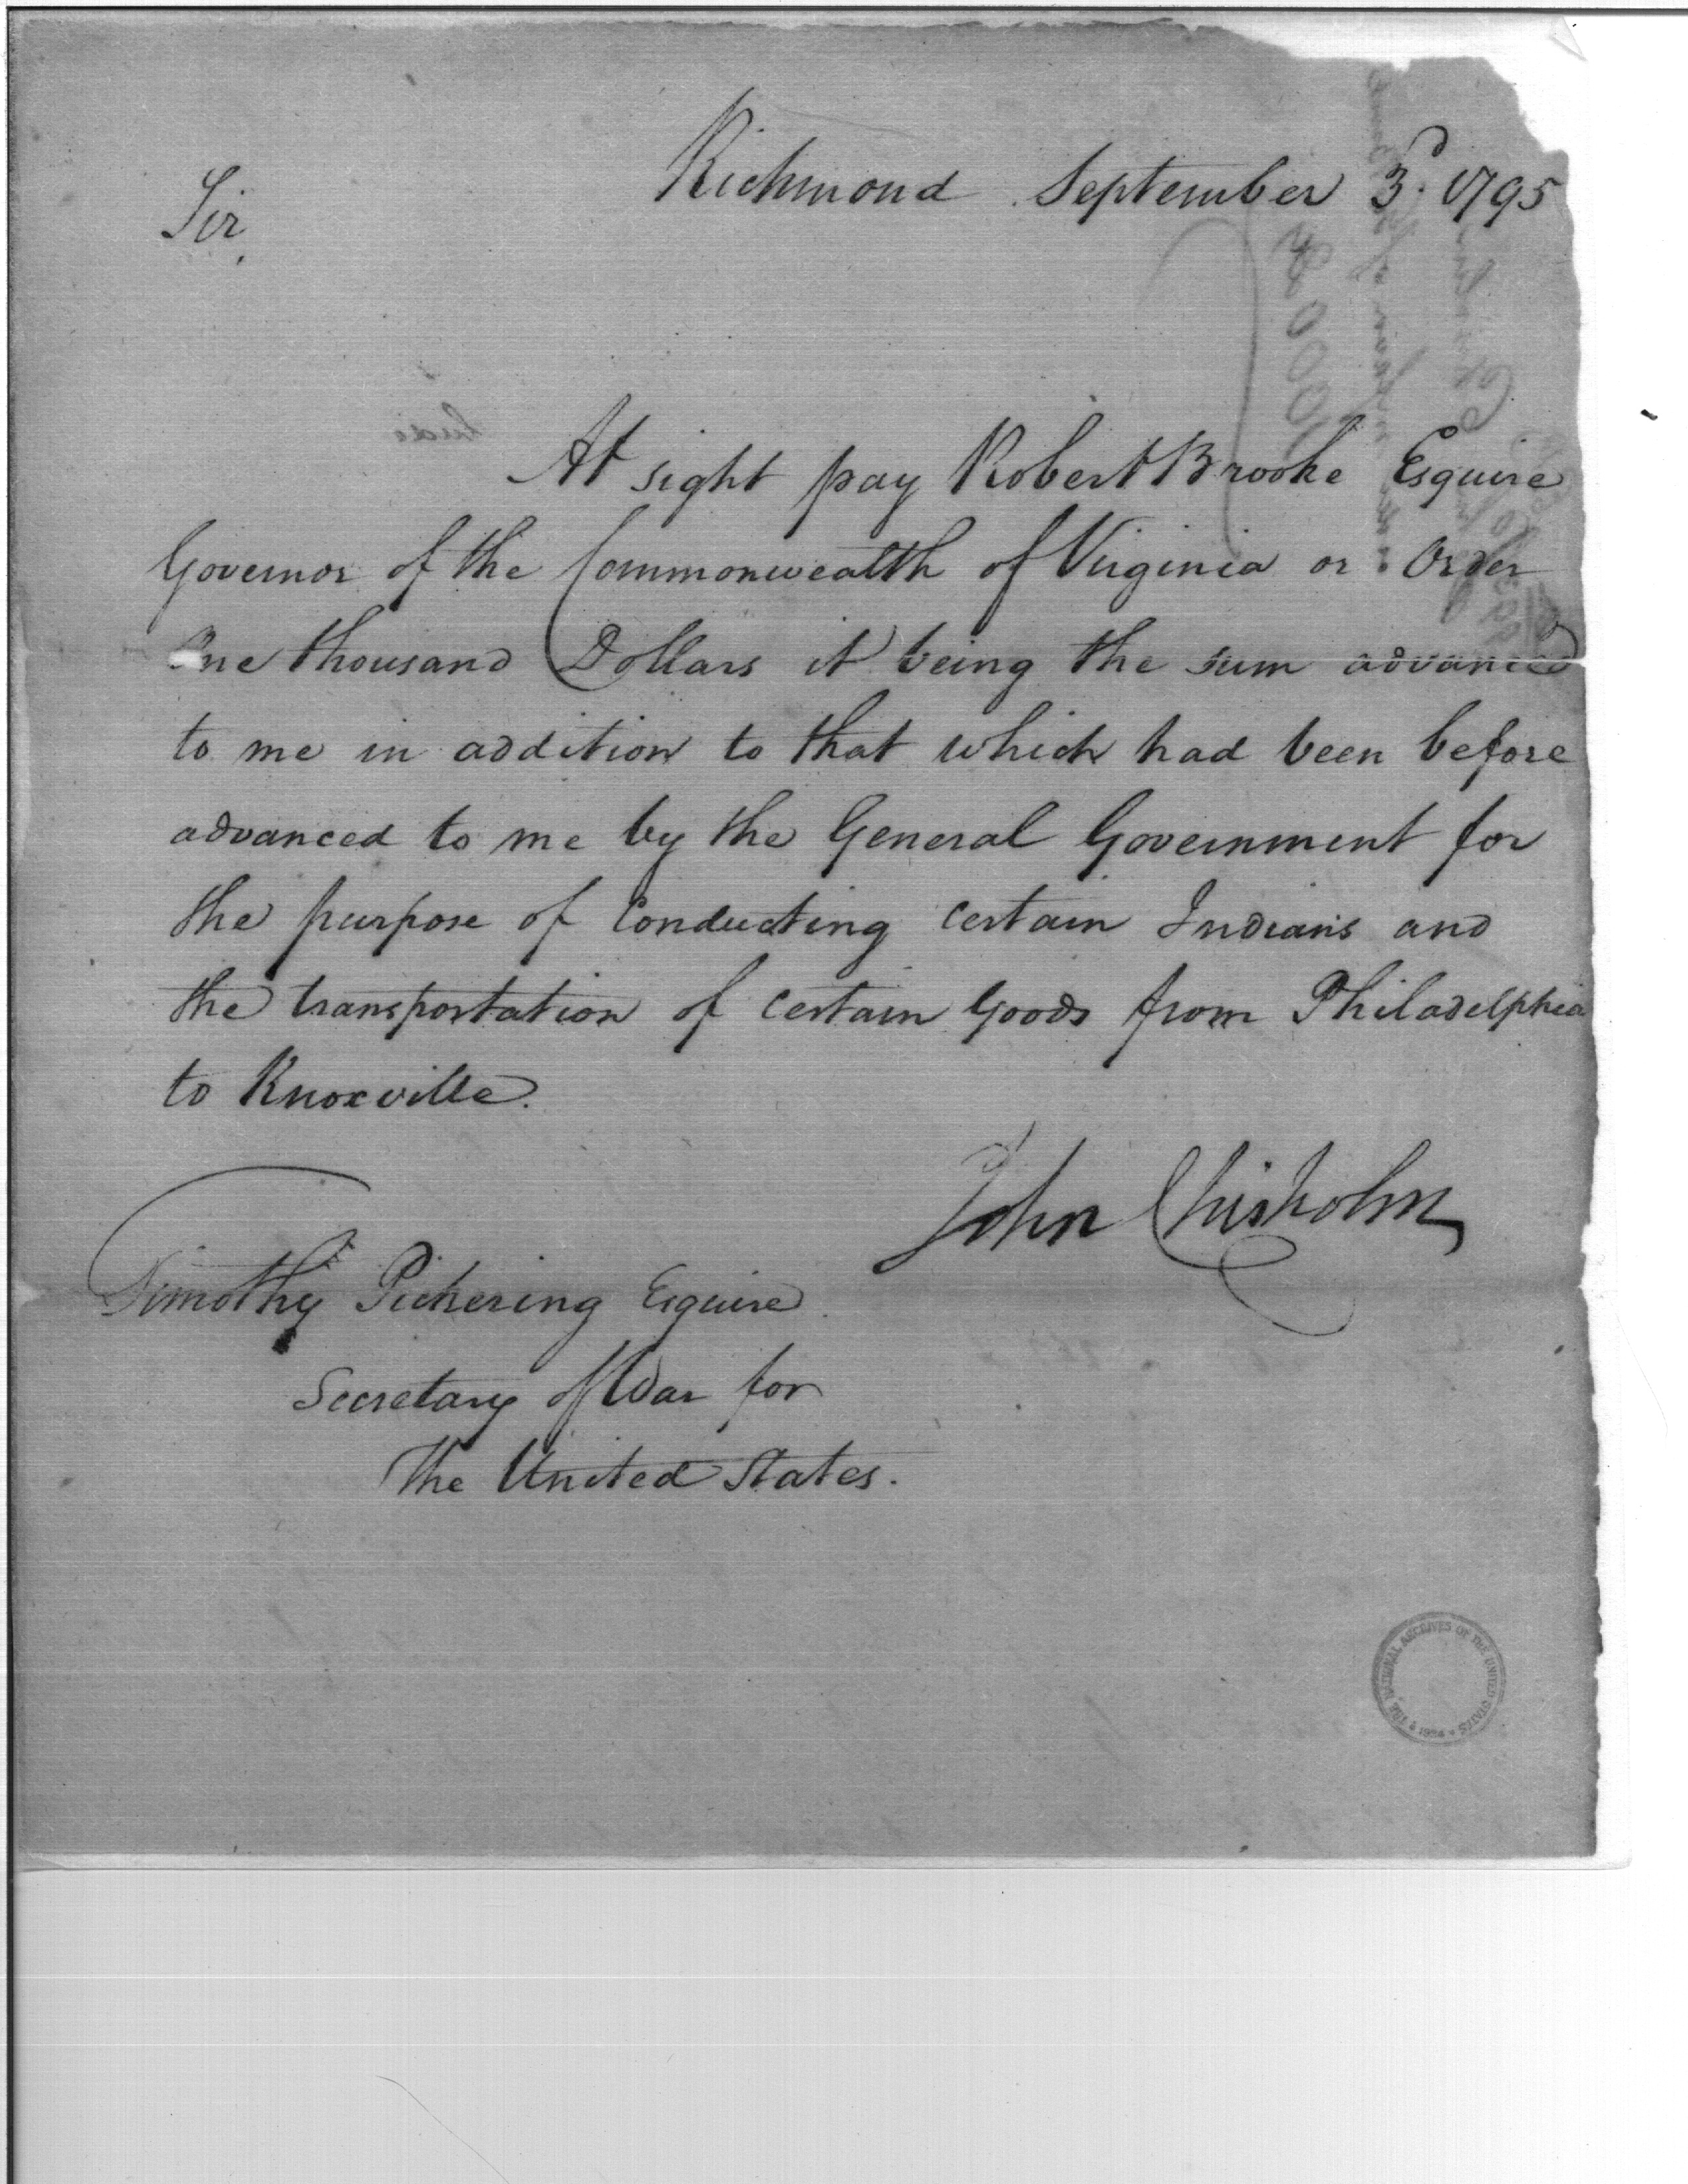 Richmond September 3d. 1795
Sir,
At sight pay Robert Brooke Esquire
Governor of the Commonwealth of Virginia or Order
One thousand Dollars it being the sum advanced
to me in addition to that which had been before
advanced to me by the General Government for
the purpose of Conducting certain Indians and
the transportation of certain Goods from Philadelphia
to Knoxville.
John Chisholm
Timothy Pickering Esquire
Secretary of War for
The United States.
THE NATIONAL ARCHIVES OF THE UNITED STATES
1934